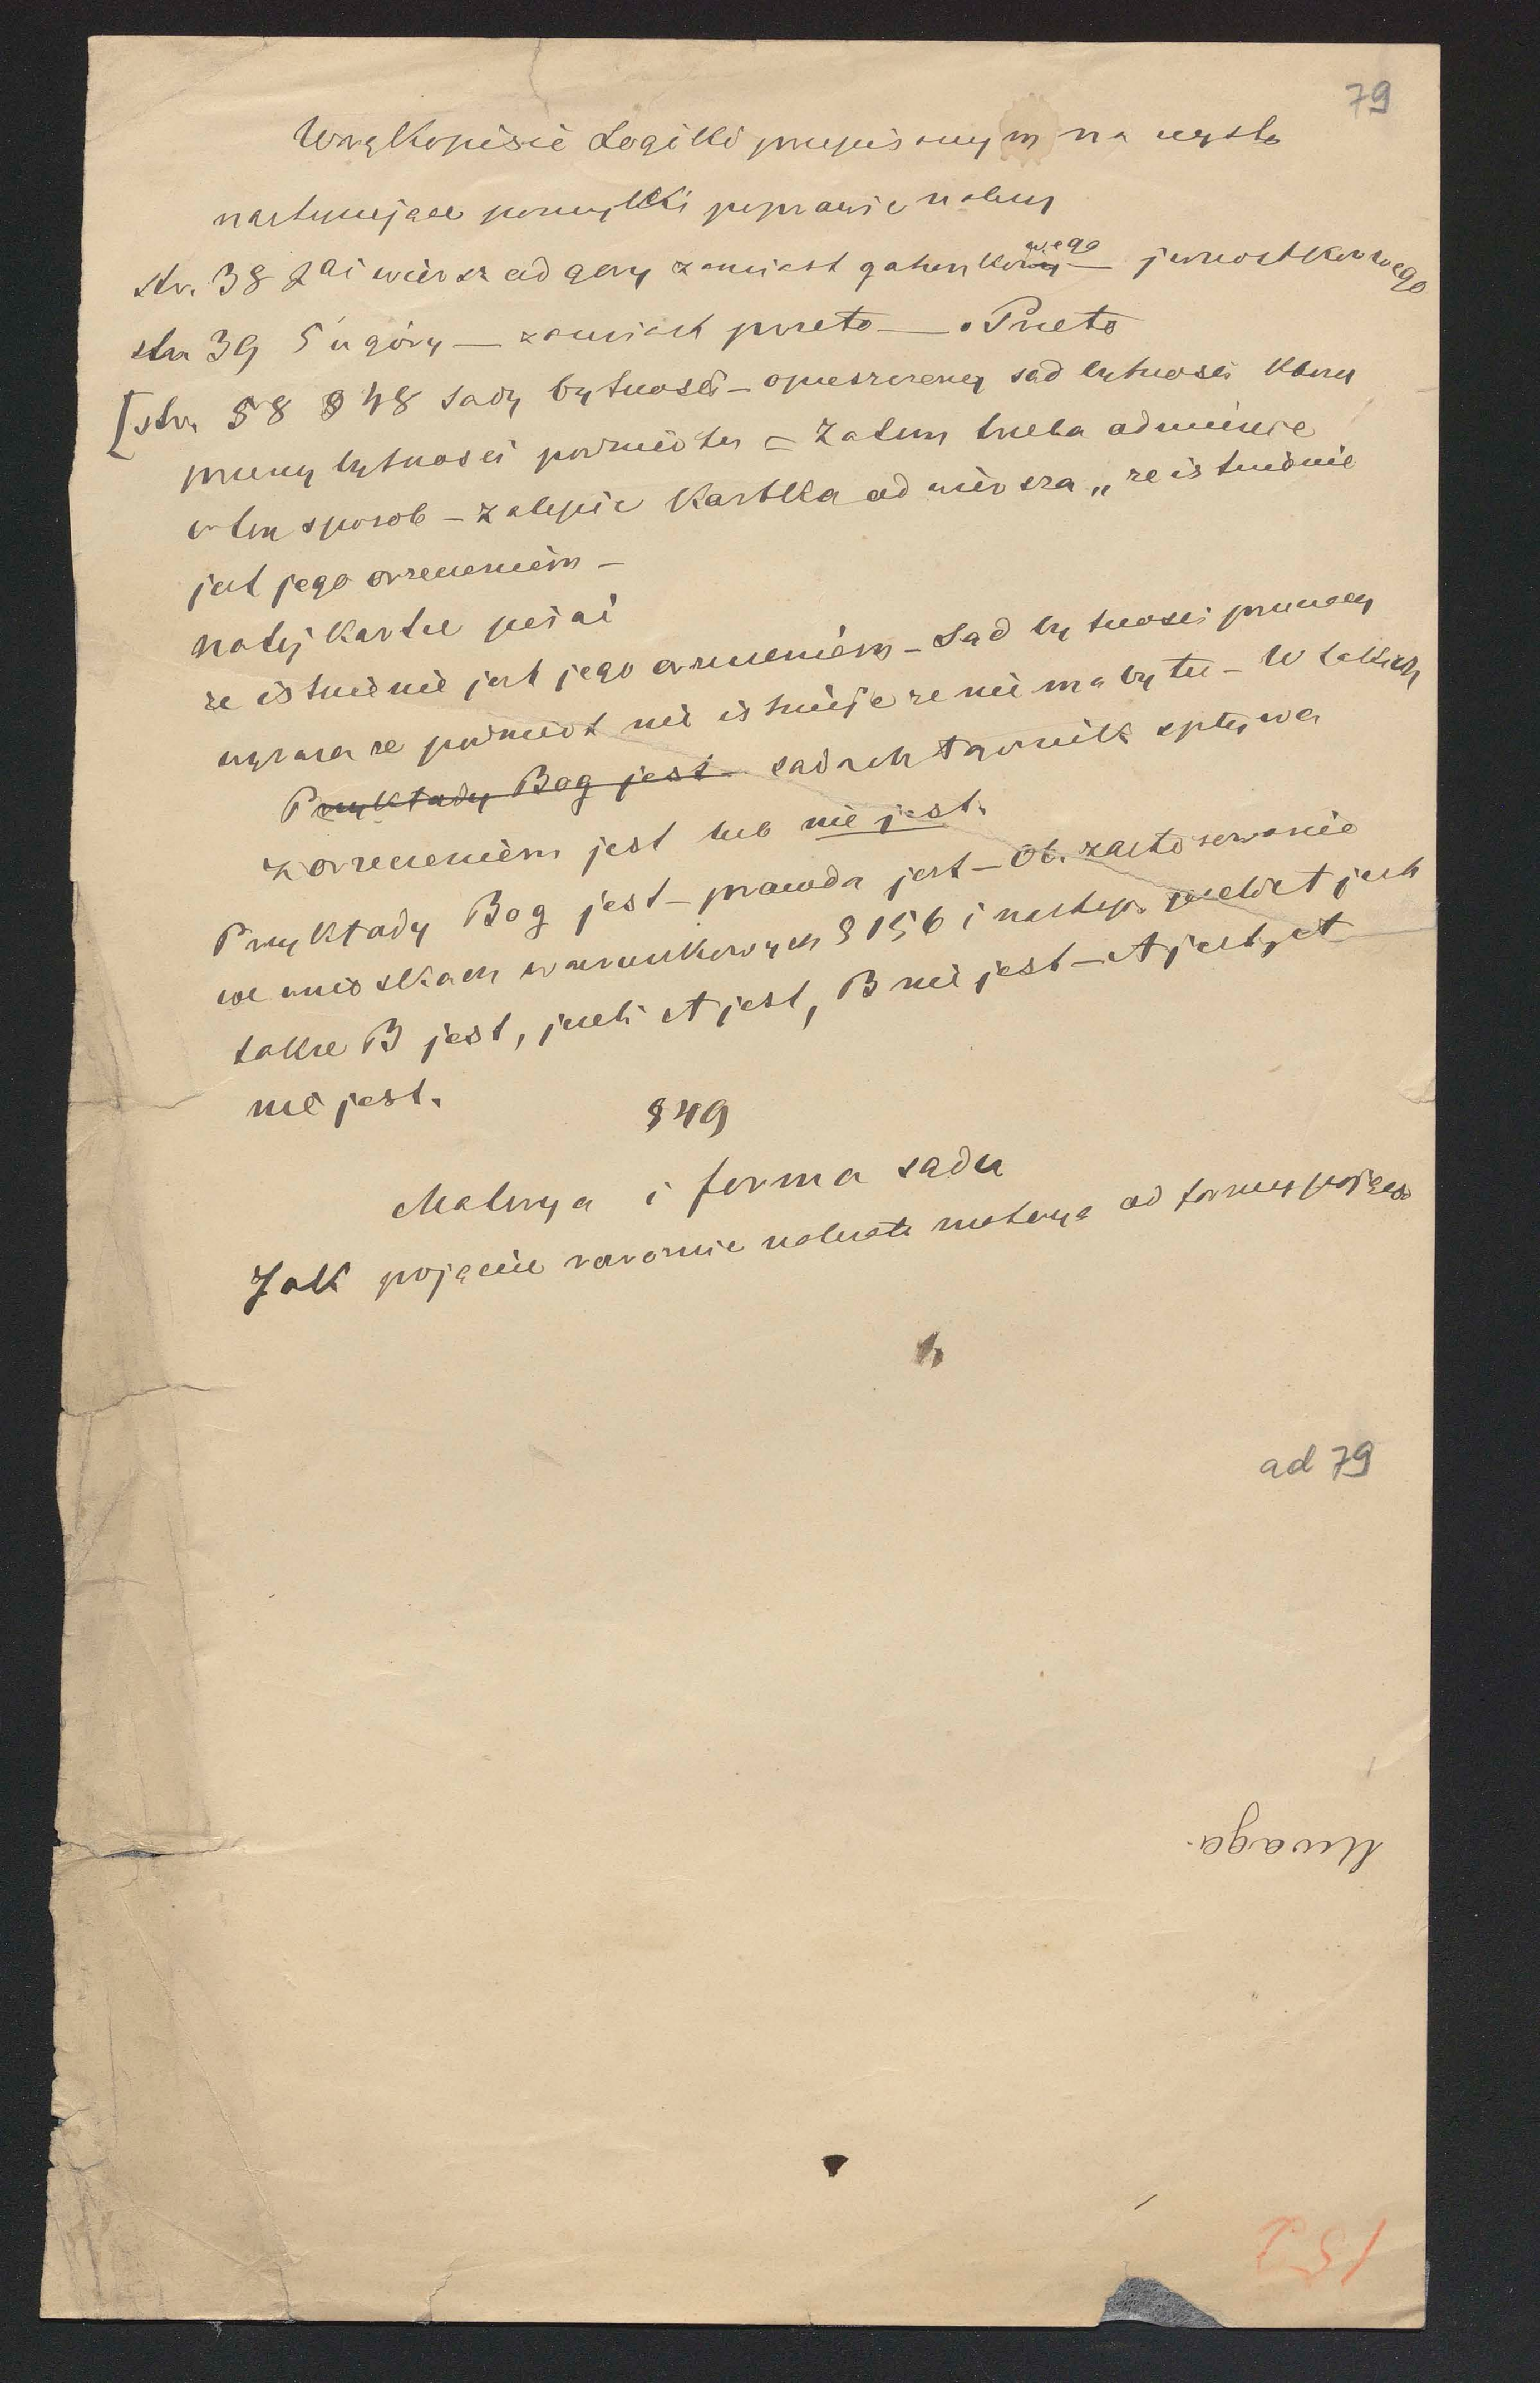 79
W rękopisie Logiki przepisanym na czysto
następujące pomyłki poprawić należy
str. 38 2gi wiersz od góry zamiast gatunkowego — jednostkowego
str 39 5 u góry — zamiast przeto — Przeto
[str. 58 § 48 Sądy bytności – opuszczony sąd bytności który
przeczy bytności podmiotu = Zatem trzeba odmienić
w ten sposób – zalepić kartką od wiersza „że istnienie
jest jego orzeczeniem –
na tej kartce pisać
że istnienie jest jego orzeczeniem – Sąd bytności przeczący
wyraża że podmiot nie istnieje że nie ma bytu – W takich
Przykłady Bog jest sadach łącznik spływa
z orzeczeniem jest lub nie jest.
Przykłady Bog jest – prawda jest – Ob. zastosowanie
we wnioskach warunkowych § 156 i następ. jeżeli A jest
także B jest, jeżeli A jest, B nie jest – A jest, A
nie jest.
§ 49
Materya i forma sadu
Jak pojęcie rozróżnić należało materyą od formy pojęcia
ad 79
Uwaga.
152